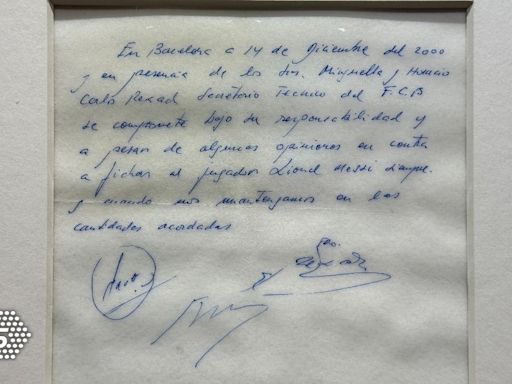 En Barcelona a 14 de Diciembre del 2000
y en presencia de los Sres. Minguella y Horacio
Carlos Rexach Secretario Tecnico del F.C.B
se compromete bajo su responsabilidad y
a pesar de algunas opiniones en contra
a fichar al jugador Lionel Messi siempre.
y cuando nos mantengamos en las
cantidades acordadas
5